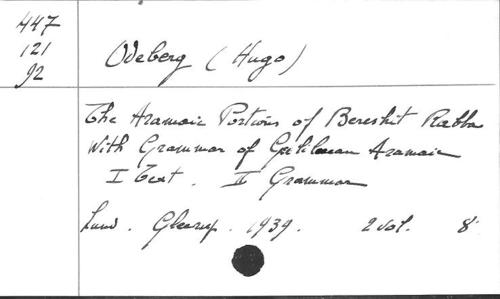 447
121
92
Odeberg (Hugo)
The Aramaic Portions of Bereshit Rabba
With Grammar of Galilaean Aramaic
I Text. II Grammar
Lund. Gleerup. 1939. 2 vol. 8°